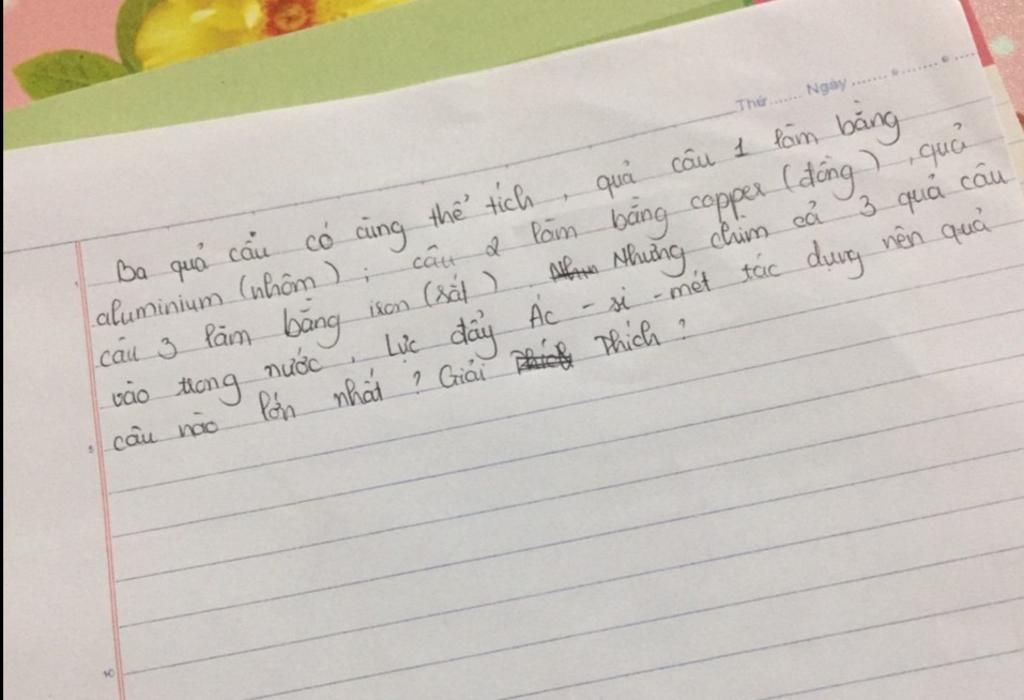 Thứ ....... Ngày ....... • ....... • .......
Ba quả cầu có cùng thể tích, quả câu 1 làm bằng
aluminium (nhôm); câu 2 làm bằng copper (đồng), quả
câu 3 làm bằng iron (sắt). Nhưng chìm cả 3 quả câu
vào trong nước, Lực đẩy Ác - si - mét tác dụng nên quả
câu nào lớn nhất? Giải Thích?
5
10